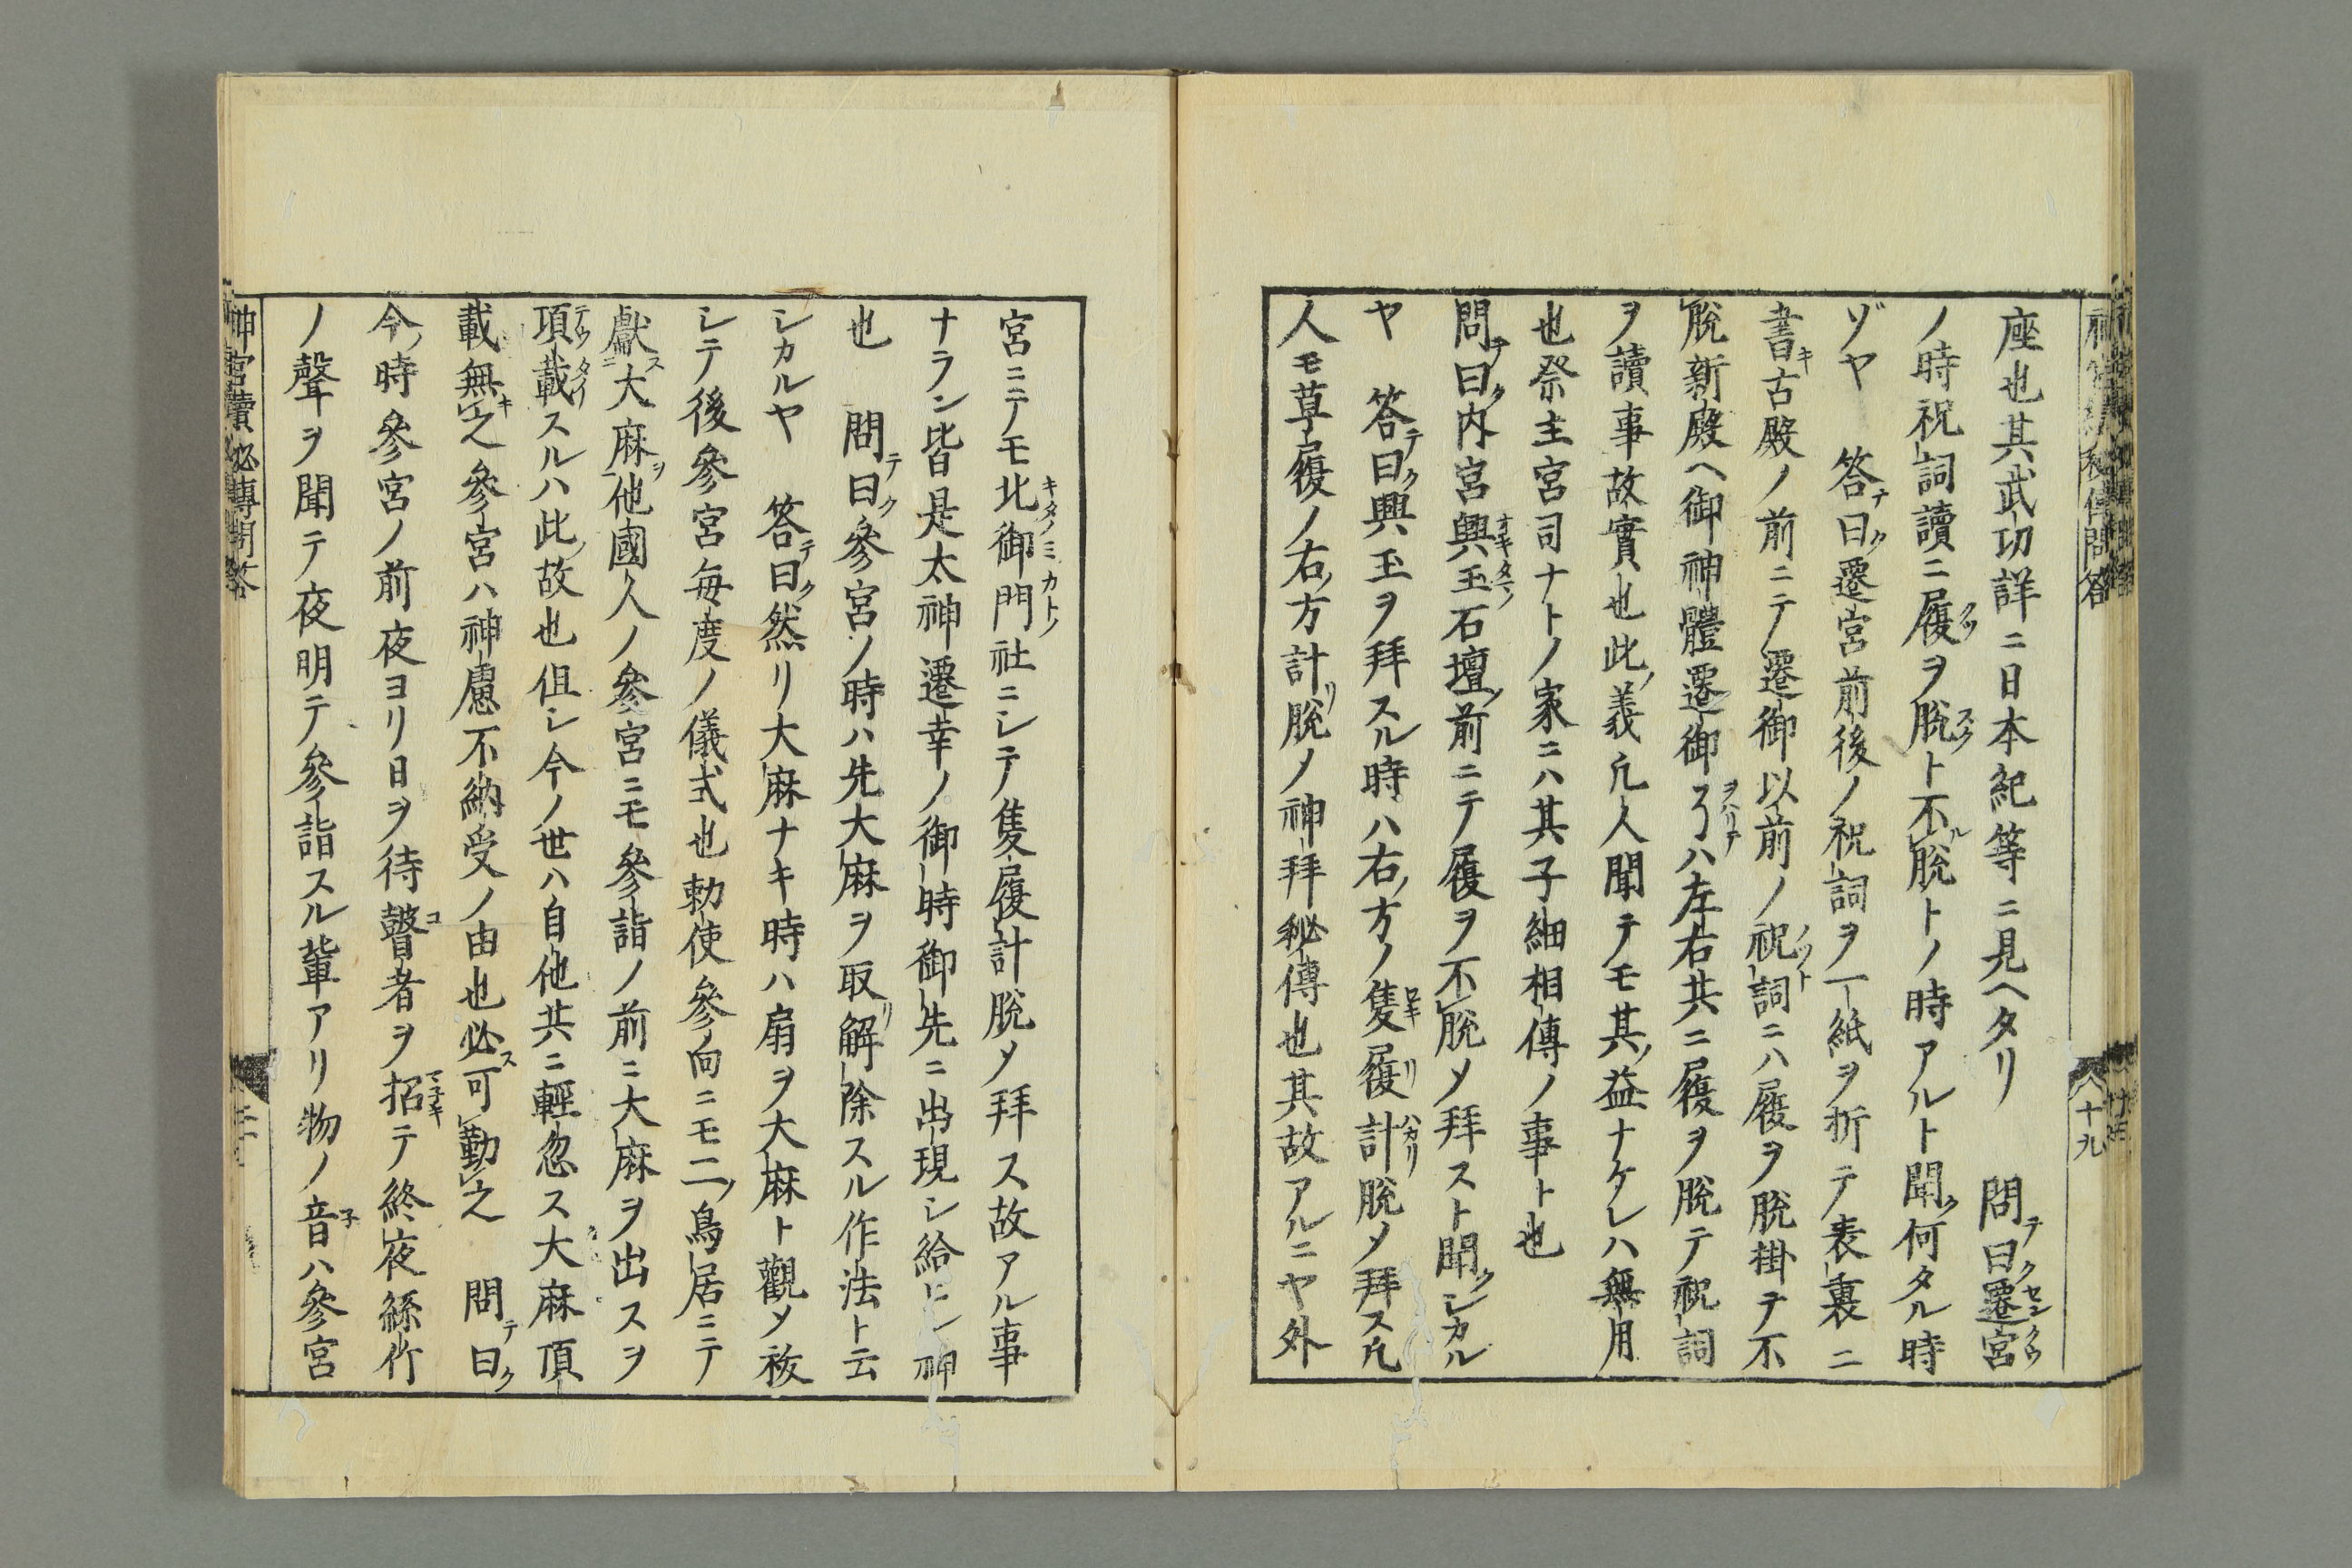 座也其武功詳ニ日本紀等ニ見ヘタリ　問テ曰ク遷宮
ノ時祝詞讀ニ履ヲ脱ト不ル脱トノ時アルト聞ク何タル時
ゾヤ　答テ曰ク遷宮前後ノ祝詞ヲ一紙ヲ折テ表裏ニ
書キ古殿ノ前ニテ遷御以前ノ祝詞ニハ履ヲ脱掛テ不
脱新殿ヘ御神體遷御了ハ左右共ニ履ヲ脱テ祝詞
ヲ讀事故實也此ノ義凢人聞テモ其ノ益ナケレハ無用
也祭主宮司ナトノ家ニハ其子細相傳ノ事ト也
問テ曰ク内宮興玉石壇ノ前ニテ履ヲ不脱メ拜スト聞クシカル
ヤ　答テ曰ク興玉ヲ拜スル時ハ右ノ方ノ隻履リ計脱メ拜ス凢
人モ草履ノ右ノ方計リ脱メ神拜秘傳也其故アルニヤ外
宮ニテモ北御門社ニシテ隻履計脱メ拜ス故アル事
ナラン皆是太神遷幸ノ御時御先ニ出現シ給ヒシ神
也　問テ曰ク參宮ノ時ハ先大麻ヲ取リ解除スル作法ト云
シカルヤ　答テ曰ク然リ大麻ナキ時ハ扇ヲ大麻ト觀メ祓
シテ後參宮毎度ノ儀式也勅使參向ニモ二ノ鳥居ニテ
獻ス大麻ヲ他國人ノ參宮ニモ參詣ノ前ニ大麻ヲ出スヲ
頂載スルハ此ノ故也但シ今ノ世ハ自他共ニ輕忽ス大麻頂
載無キ之參宮ハ神慮不納受ノ由也必ス可勤之　問テ曰ク
今ノ時參宮ノ前夜ヨリ日ヲ待瞽者ヲ招テ終夜絲竹
ノ聲ヲ聞テ夜明テ參詣スル輩アリ物ノ音ハ參宮
神宮續秘傳問答
十九